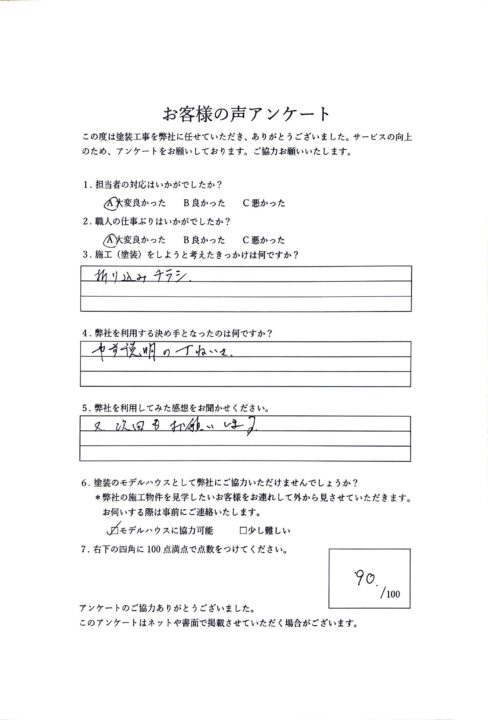 お客様の声アンケート
この度は塗装工事を弊社に任せていただき、ありがとうございました。サービスの向上
のため、アンケートをお願いしております。ご協力お願いいたします。
1.担当者の対応はいかがでしたか?
A大変良かった B良かった C悪かった
2.職人の仕事ぶりはいかがでしたか?
A大変良かった B良かった C悪かった
3.施工(塗装)をしようと考えたきっかけは何ですか?
折り込みチラシ.
4.弊社を利用する決め手となったのは何ですか?
説明の丁ねいさ
5.弊社を利用してみた感想をお聞かせください。
又次回もお願いします
6.塗装のモデルハウスとして弊社にご協力いただけませんでしょうか?
*弊社の施工物件を見学したいお客様をお連れして外から見させていただきます。
お伺いする際は事前にご連絡いたします。
☑モデルハウスに協力可能 □少し難しい
7.右下の四角に100点満点で点数をつけてください。
90.
/100
アンケートのご協力ありがとうございました。
このアンケートはネットや書面で掲載させていただく場合がございます。